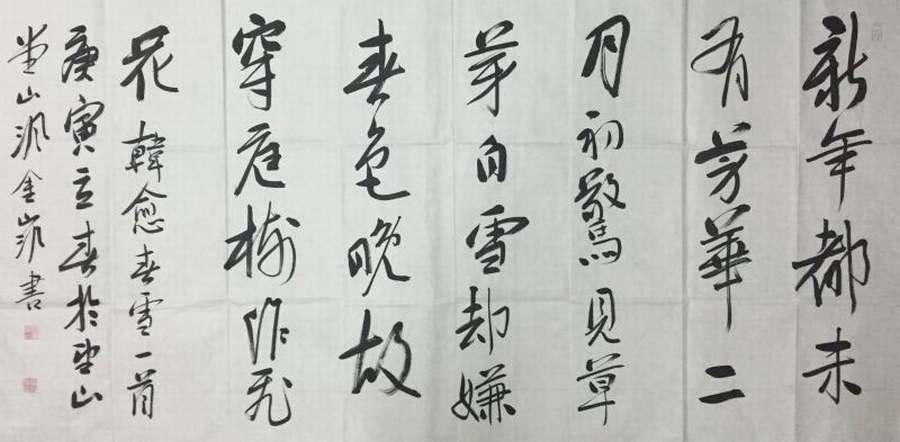 新年都未
有芳華二
月初驚見草
芽白雪却嫌
春色晚故
穿庭樹作飛
花 韓愈春雪一首
庚寅立春於山
山金書